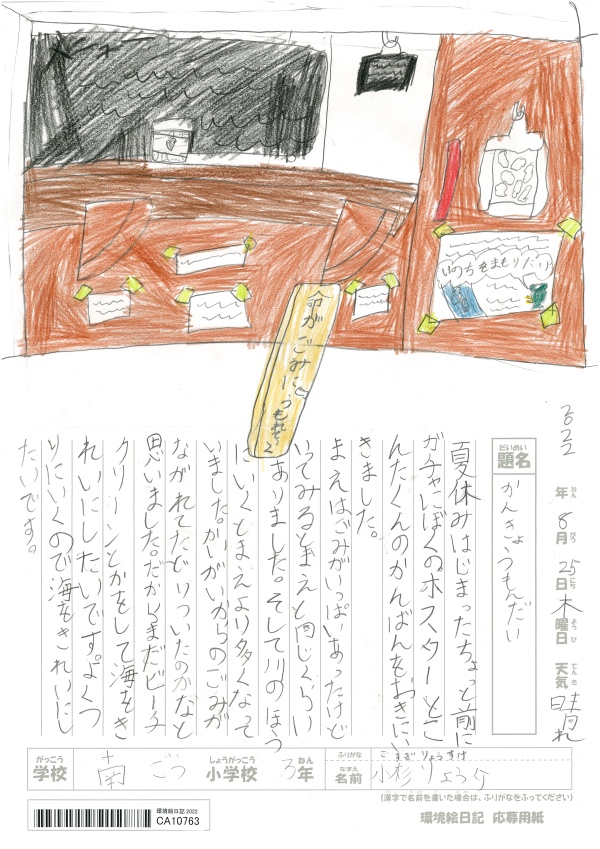 メニュー
いのちをまもりたい
命がごみにうもれてく
2022年8月25日木曜日 天気 晴れ
ねん がつ にち よう び てん き
だいめい
題名
かんきょうもんだい
夏休みはじまったちょっと前に
ガチャにぼくのポスターとご
んたくんのかんばんをおきにい
きました。
まえはごみがいっぱいあったけど
いってみるとまえと同じくらい
ありました。そして川のほう
にいくとまえより多くなって
いました。かいがいからのごみが
ながれてたどりついたのかなと
思いました。だからまだビーチ
クリーンとかをして海をき
れいにしたいです。よくつ
りにいくので海をきれいにし
たいです。
がっこう しょうがっこう ねん ふりがな こすぎ りょうすけ
学校 南 小学校 3年
なまえ
名前 小杉
(漢字で名前を書いた場合は、ふりがなをふってください)
環境絵日記2022
CA10763
環境絵日記 応募用紙